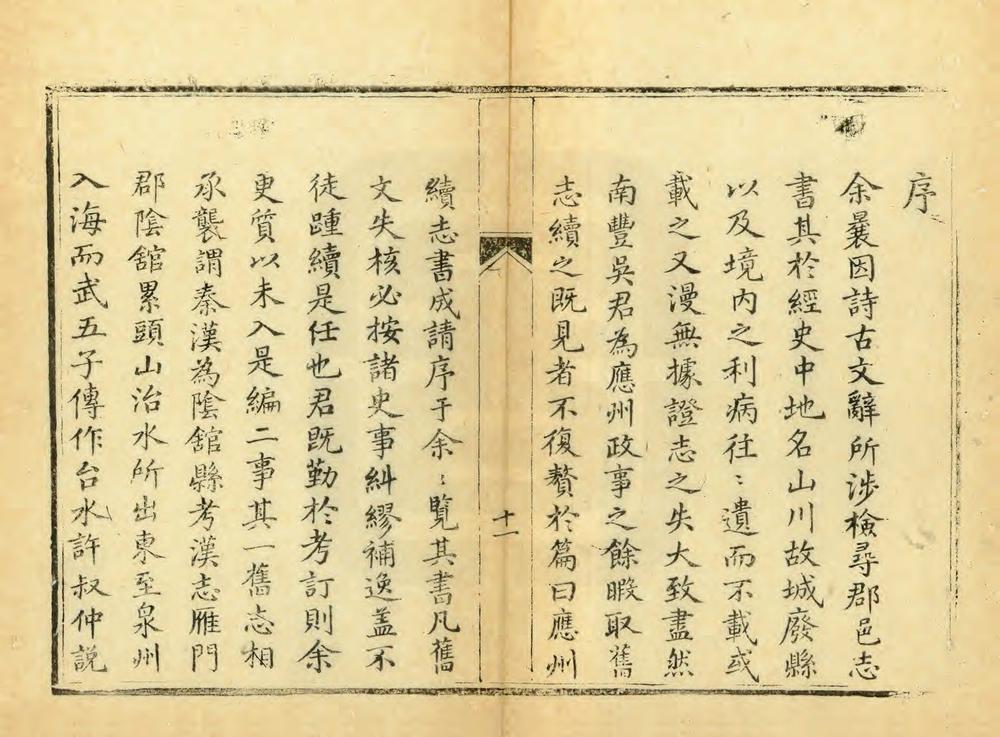 序
余曩因詩古文辭所涉檢尋郡邑志
書其於經史中地名山川故城廢縣
以及境内之利病往〻遺而不載或
載之又漫無據證志之失大致盡然
南豐吳君為應州政事之餘暇取舊
志續之既見者不復贅於篇曰應州
十一
續志書成請序于余〻覽其書凡舊
文失核必按諸史事糾繆補逸盖不
徒踵續是任也君既勤於考訂則余
更質以未入是編二事其一舊志相
承襲謂秦漢為陰舘縣考漢志雁門
郡陰舘累頭山治水所出東至泉州
入海而武五子傳作台水許叔仲説